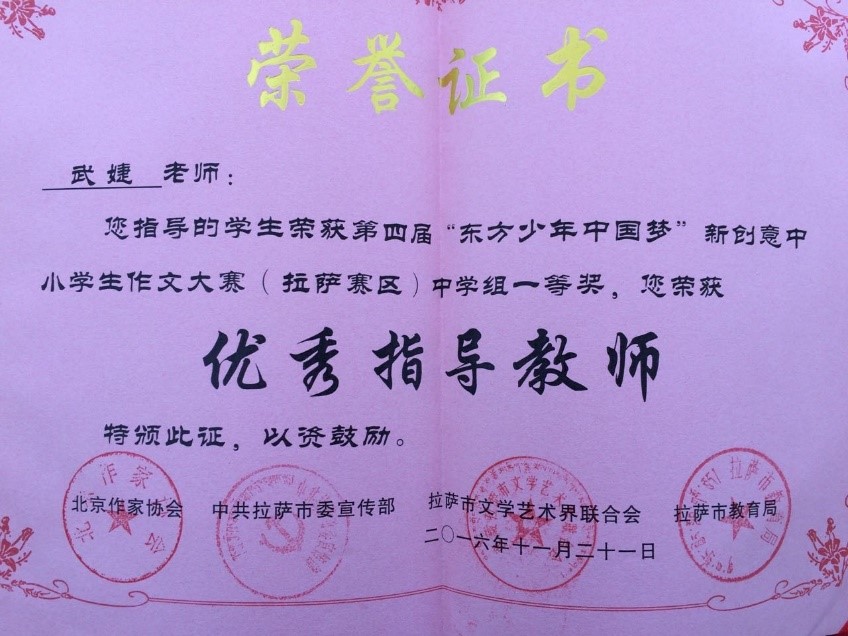 荣誉证书
武婕 老师：
您指导的学生荣获第四届“东方少年中国梦”新创意中
小学生作文大赛（拉萨赛区）中学组一等奖，您荣获
优秀指导教师
特颁此证，以资鼓励。
北京作家协会 中共拉萨市委宣传部 拉萨市文学艺术界联合会 拉萨市教育局
二〇一六年十一月二十一日